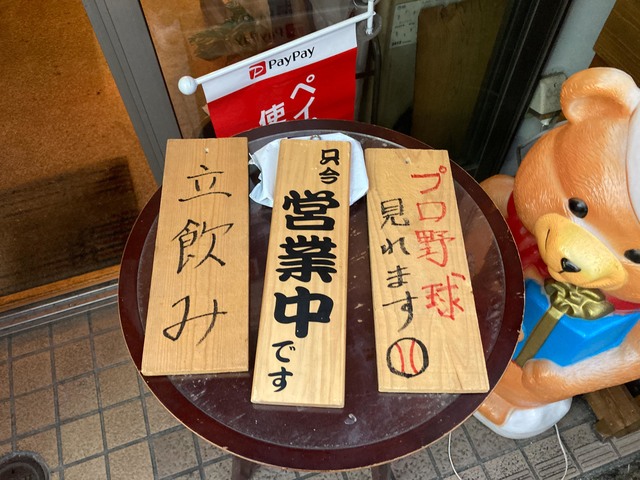 PayPay
ペイ
使
立飲み
只今
営業中
です
プロ野球
見れます